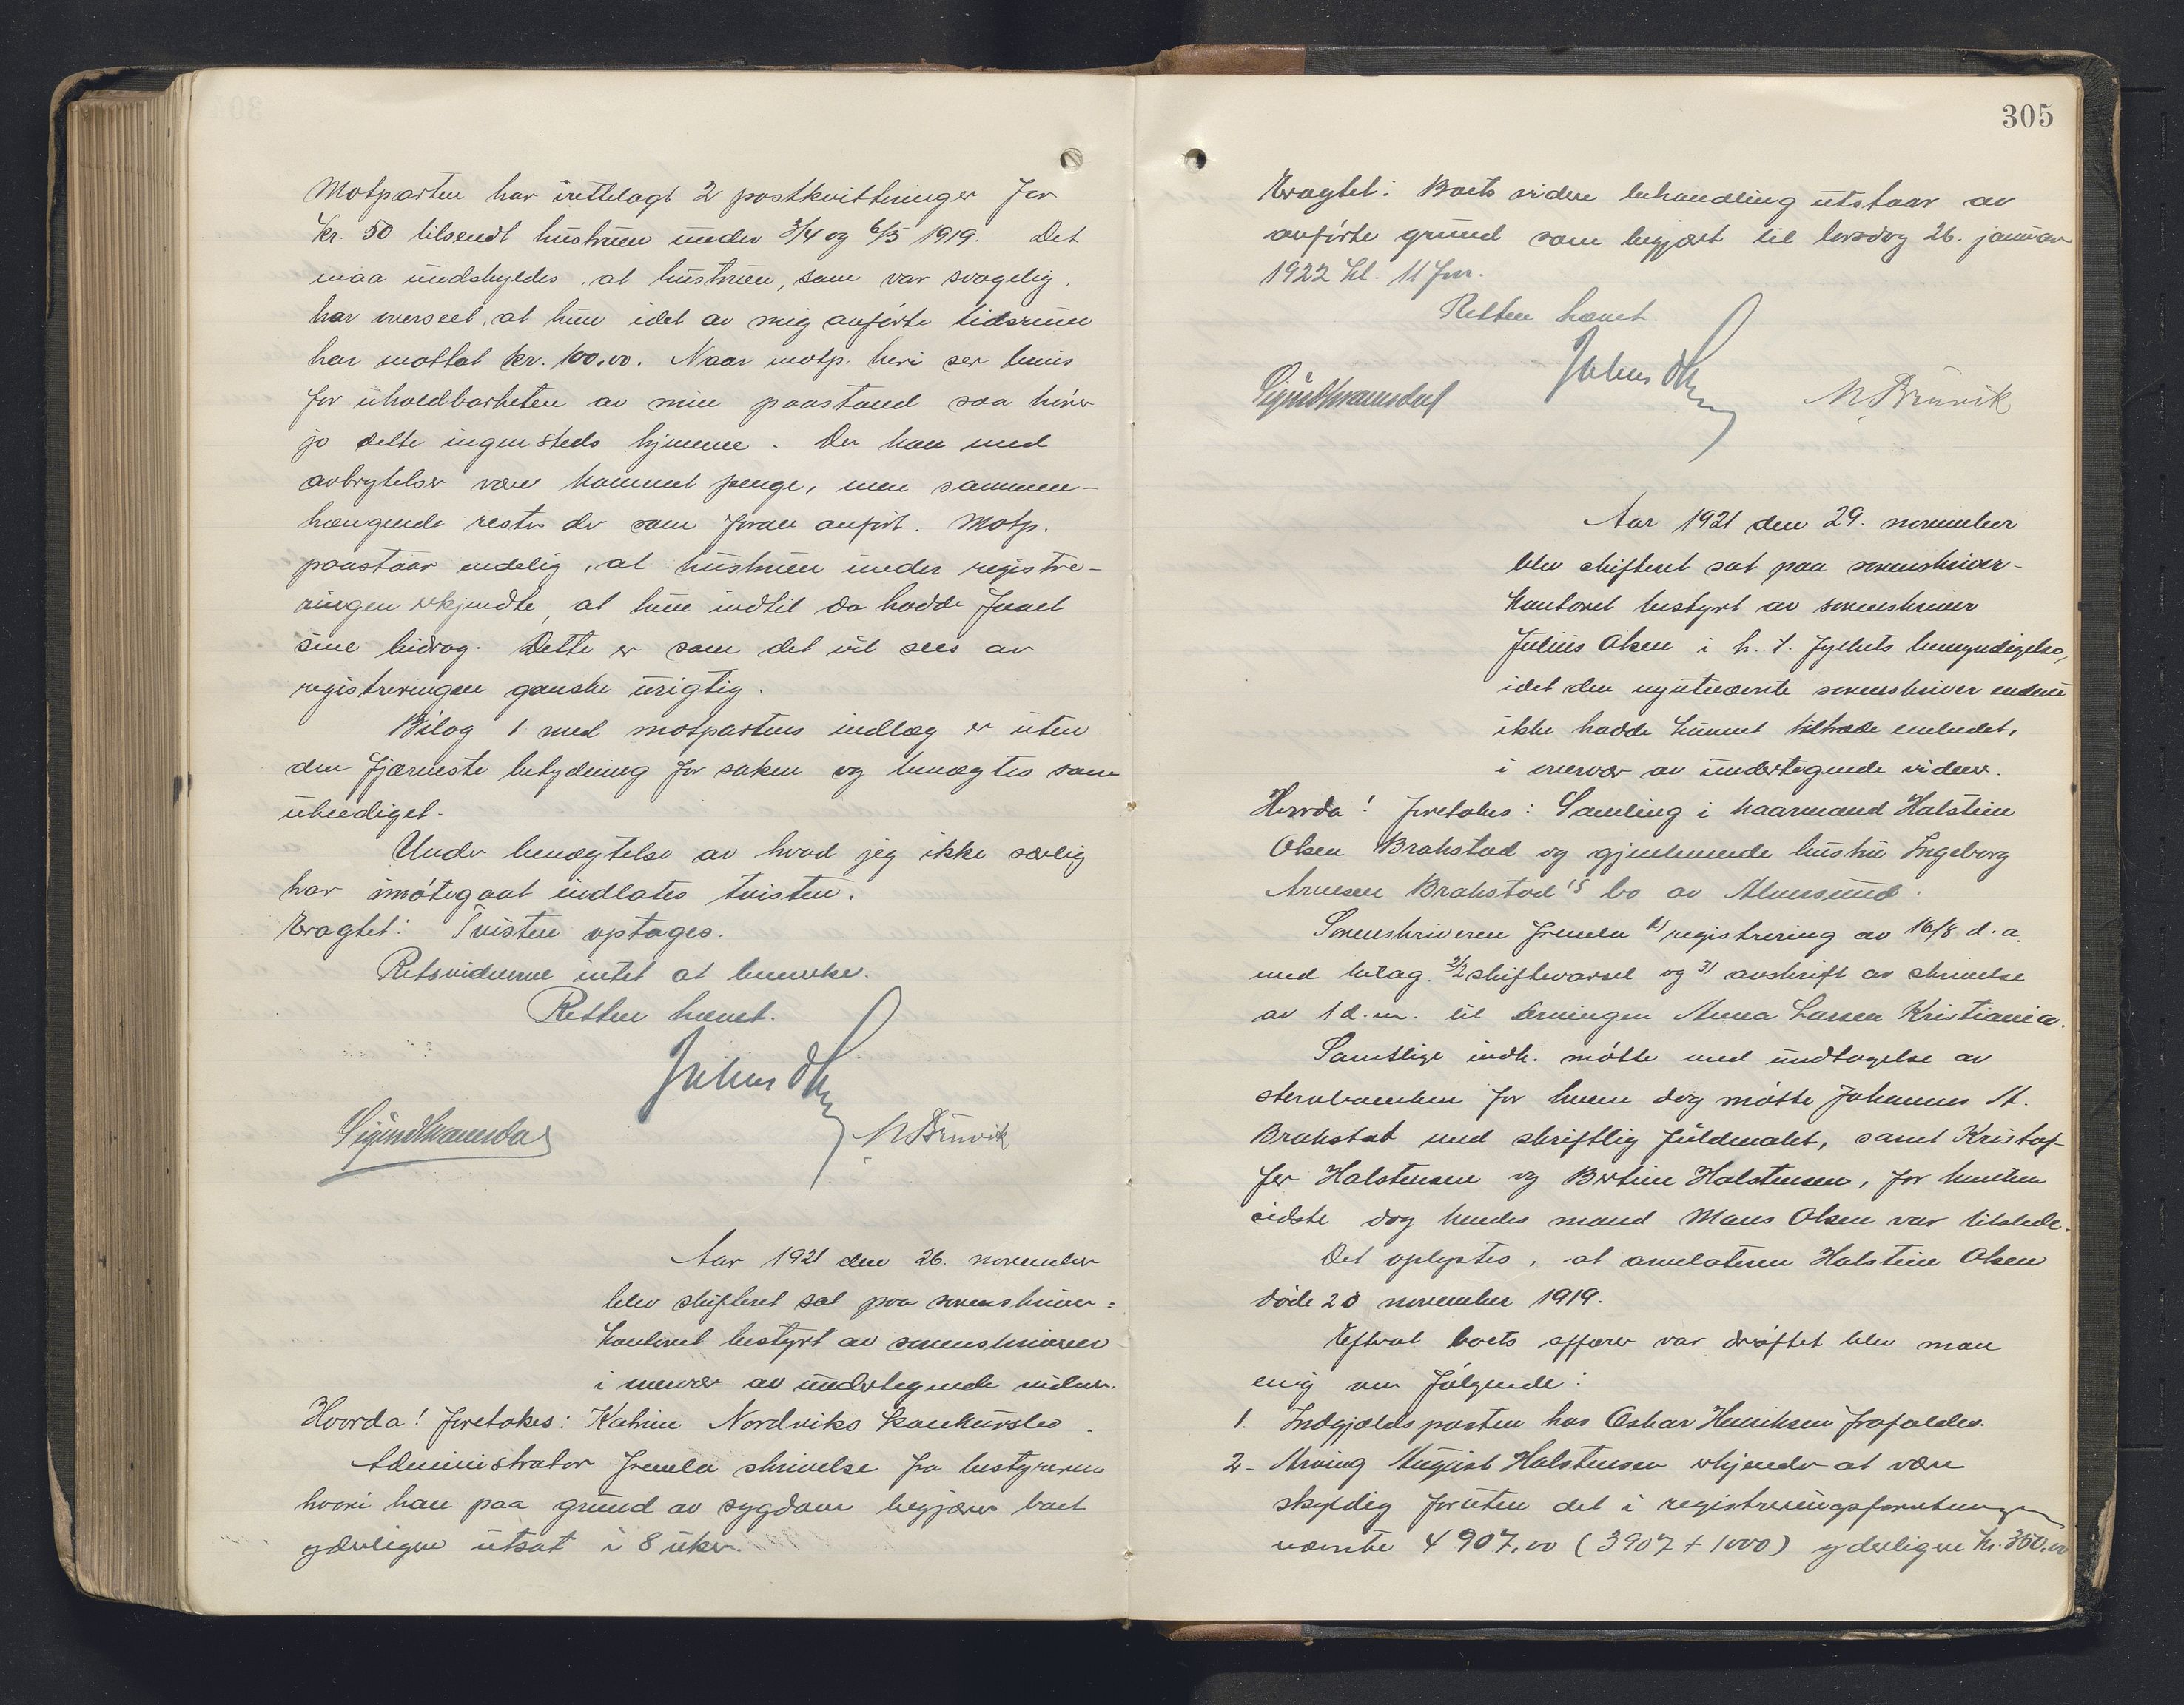 Motparten har irettelagt 2 postkvitteringer for
kr. 50 tilsendt hustruen under 3/4 og 6/5 1919. Det
maa undskyldes, at hustruen, som var svagelig,
har overseet, at hun i det av mig anførte tidsrum
har mottat kr. 100,00. Naar motp. heri ser bevis
for uholdbarheten av min paastand saa hører
jo dette ingensteds hjemme. Der kan med
avbrytelser være kommet penge, men sammen-
hængende rester der som foran anført. Motp.
paastaar endelig, at hustruen under registre-
ringen erkjendte, at hun indtil da hadde faaet
sine bidrag. Dette er som det vil sees av
registreringen ganske urigtig.
Bilag 1 med motpartens indlæg er uten
den fjærneste betydning for saken og benægtes som
ubeediget.
Under benægtelse av hvad jeg ikke særlig
har imøtegaat indlates tvisten.
Eragtet: Tvisten optages.
Retsvidnerne intet at bemerke.
Retten hævet.
Julius Olsen
Sigurd Kvamsdal
M Bruvik
Aar 1921 den 26. november
blev skifteret sat paa sorenskriver-
kontoret bestyrt av sorenskriveren
i overvær av undertegnede vidner.
Hvorda! foretokes: Katrine Nordviks konkursbo.
Administrator fremla skrivelse fra bestyreren
hvori han paa grund av sygdom begjærer boet
yderligere utsat i 8 uker.
305
Eragtet: Boets videre behandling utstaar av
anførte grund som begjært til torsdag 26. januar
1922 kl. 11 fm.
Retten hævet.
Julius Olsen
Sigurd Kvamsdal
M Bruvik
Aar 1921 den 29. november
blev skifteret sat paa sorenskriver-
kontoret bestyrt av sorenskriver
Julius Olsen i h. t. fylkets bemyndigelse,
idet den nyutnævnte sorenskriver endnu
ikke hadde kunnet tiltræde embedet,
i overvær av undertegnede vidner.
Hvorda! foretokes: Samling i haarmand Halstein
Olsen Brakstad og gjenlevende hustru Ingeborg
Arnesen Brakstad's bo av Alversund.
Sorenskriveren fremla 1) registrering av 16/8 d. a.
med bilag. 2) 2 skiftevarsel og 3) avskrift av skrivelse
av 1 d. m. til arvingen Anna Larsen Kristiania.
Samtlige indk. møtte med undtagelse av
stervboenken for hvem dog møtte Johannes A.
Brakstad med skriftlig fuldmakt, samt Kristof-
fer Halstensen og Bertine Halstensen, for hvilken
sidste dog hendes mand Mans Olsen var tilstede.
Det oplystes, at avelateren Halstein Olsen
døde 20 november 1919.
Efterat boets affærer var drøftet blev man
enig om følgende:
1. Indgjældsposten hos Oskar Henriksen frafaldes.
2. Arving August Halstensen erkjender at være
skyldig foruten det i registreringsforretningen
nævnte 4 907,00 (3907 + 1000) yderligere kr. 350,00